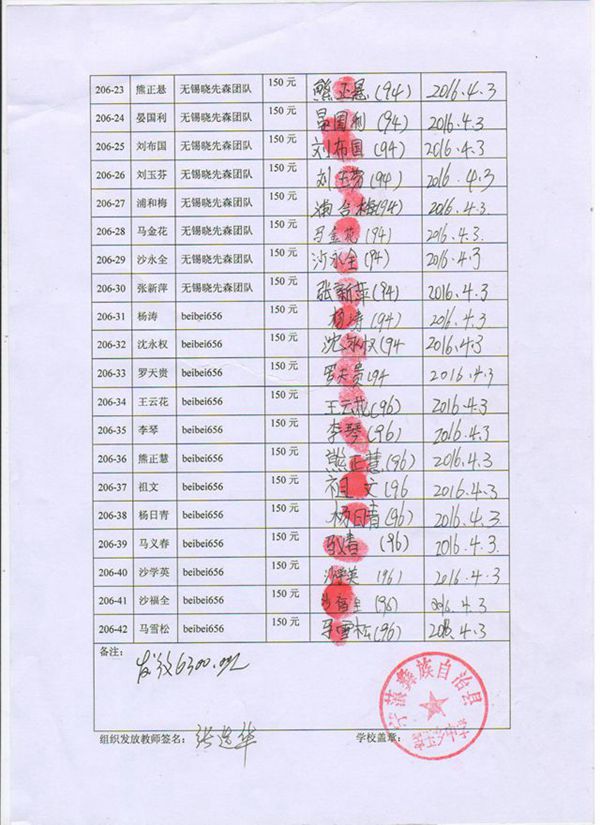 206-23 熊正悬 无锡晓先森团队 150 元 熊正悬(94) 2016.4.3
206-24 晏国利 无锡晓先森团队 150 元 晏国利(94) 2016.4.3
206-25 刘布国 无锡晓先森团队 150 元 刘布国(94) 2016.4.3
206-26 刘玉芬 无锡晓先森团队 150 元 刘玉芬(94) 2016.4.3
206-27 浦和梅 无锡晓先森团队 150 元 浦合梅(94) 2016.4.3
206-28 马金花 无锡晓先森团队 150 元 马金花(94) 2016.4.3.
206-29 沙永全 无锡晓先森团队 150 元 沙永全(94) 2016.4.3
206-30 张新萍 无锡晓先森团队 150 元 张新萍(94) 2016.4.3
206-31 杨涛 beibei656 150 元 杨涛(94) 2016.4.3
206-32 沈永权 beibei656 150 元 沈永权(94 2016.4.3
206-33 罗天贵 beibei656 150 元 罗天贵(94 2016.4.3
206-34 王云花 beibei656 150 元 王云花(96) 2016.4.3
206-35 李琴 beibei656 150 元 李琴(96) 2016.4.3
206-36 熊正慧 beibei656 150 元 熊正慧(96) 2016.4.3
206-37 祖文 beibei656 150 元 祖文(96 2016.4.3
206-38 杨日青 beibei656 150 元 杨日青(96) 2016.4.3
206-39 马义春 beibei656 150 元 (96) 2016.4.3.
206-40 沙学英 beibei656 150 元 沙学英(96) 2016.4.3
206-41 沙福全 beibei656 150 元 (96) 2016.4.3
206-42 马雪松 beibei656 150 元 马雪松(96) 2016.4.3
备注:
发放6300.元
宁蒗彝族自治县
组织发放教师签名: 学校盖章: